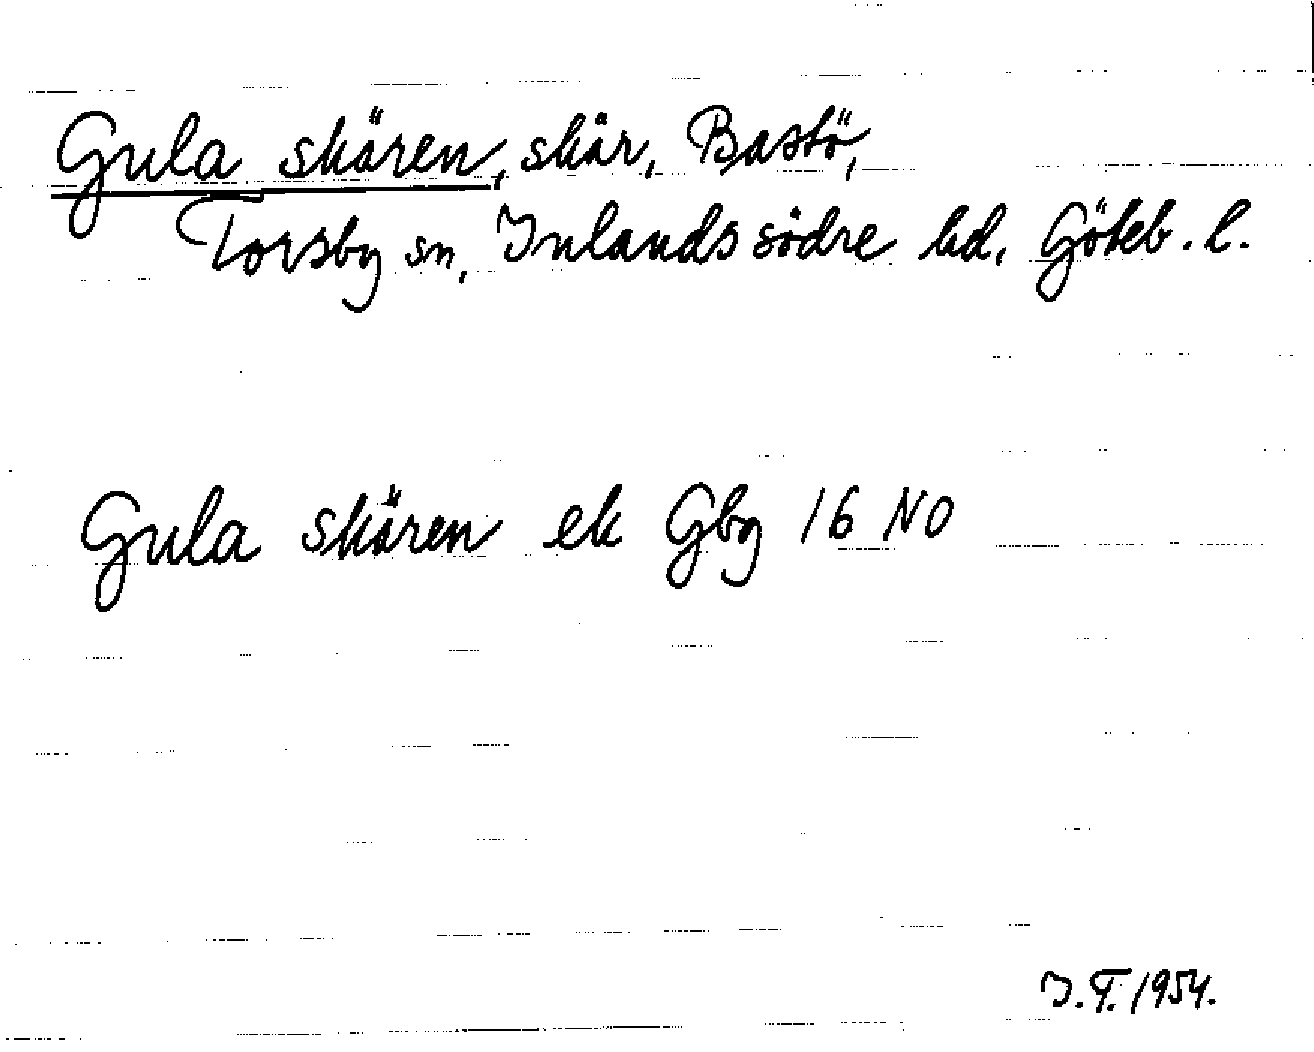 Gula skären, skär, Bastö,
Torsby sn, Inlands södre hd, Göteb. l.
Gula skären ek Gbg 16 NO
I.T. 1954.